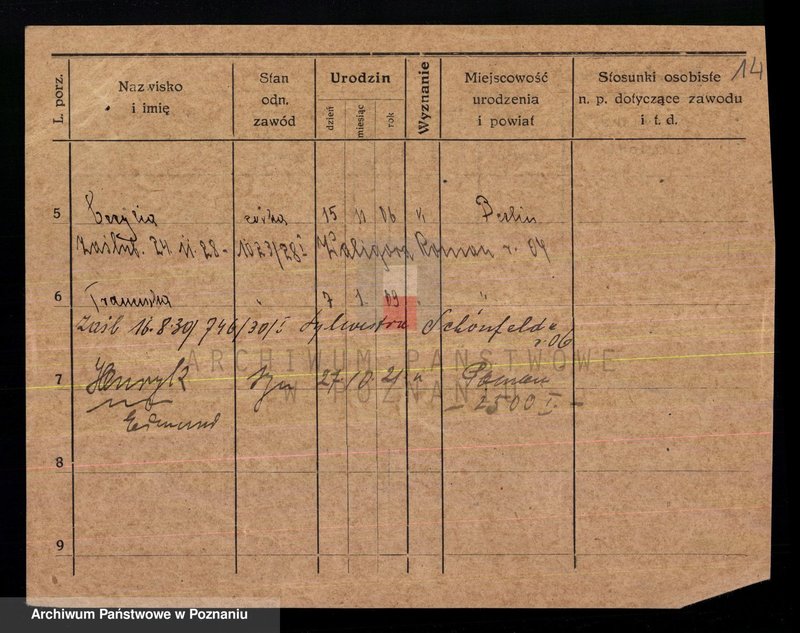 14
L. porz. Nazwisko i imię Stan odn. zawód Urodzin dzień miesiąc rok Wyznanie Miejscowość urodzenia i powiat Stosunki osobiste n. p. dotyczące zawodu i t. d.
5 córka 15 11 06 Berlin
24. 11. 28 - 1023/28 I Roman r. 04
6 Franciszka " 7 1. 09 " "
16.8.30/746/30/I Sylwestra Schönfelda
r. 06
7 Henryk Syn 27 10. 21 " Poznań
Edmund — 2500 I. —
8
9
ARCHIWUM PAŃSTWOWE
W POZNANIU
Archiwum Państwowe w Poznaniu